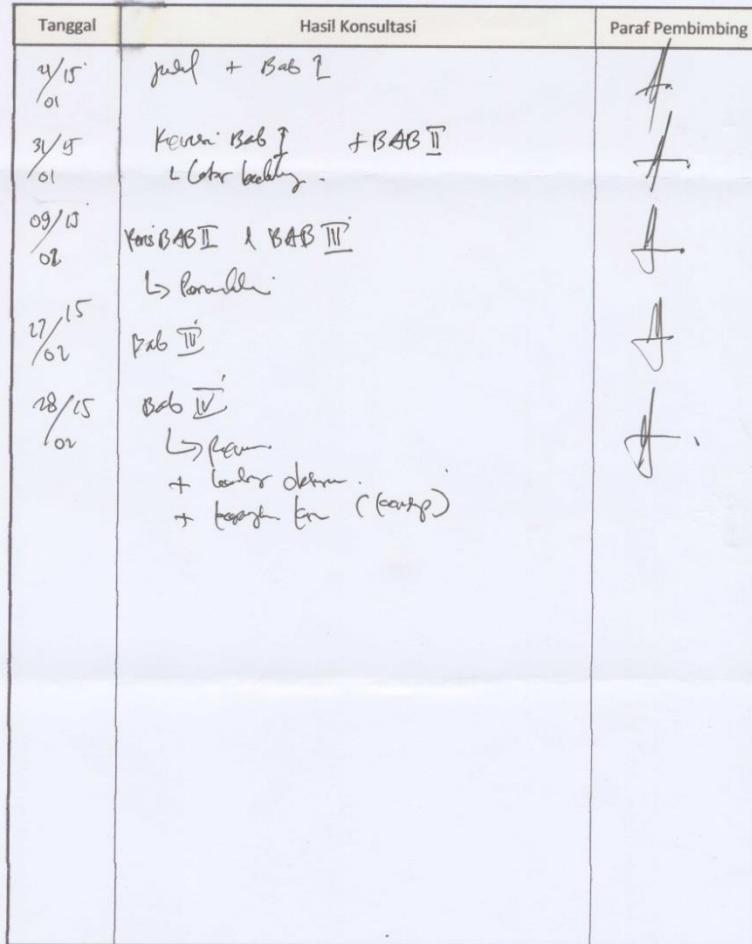 Tanggal Hasil Konsultasi Paraf Pembimbing
21/15 01 Judul + Bab I
31/15 01 Revisi Bab I + BAB II
Latar belakang.
09/15 02 Revisi BAB II & BAB III
27/15 02 Bab IV
28/15 02 Bab IV
↳ Revisi
+
+ (konsep)